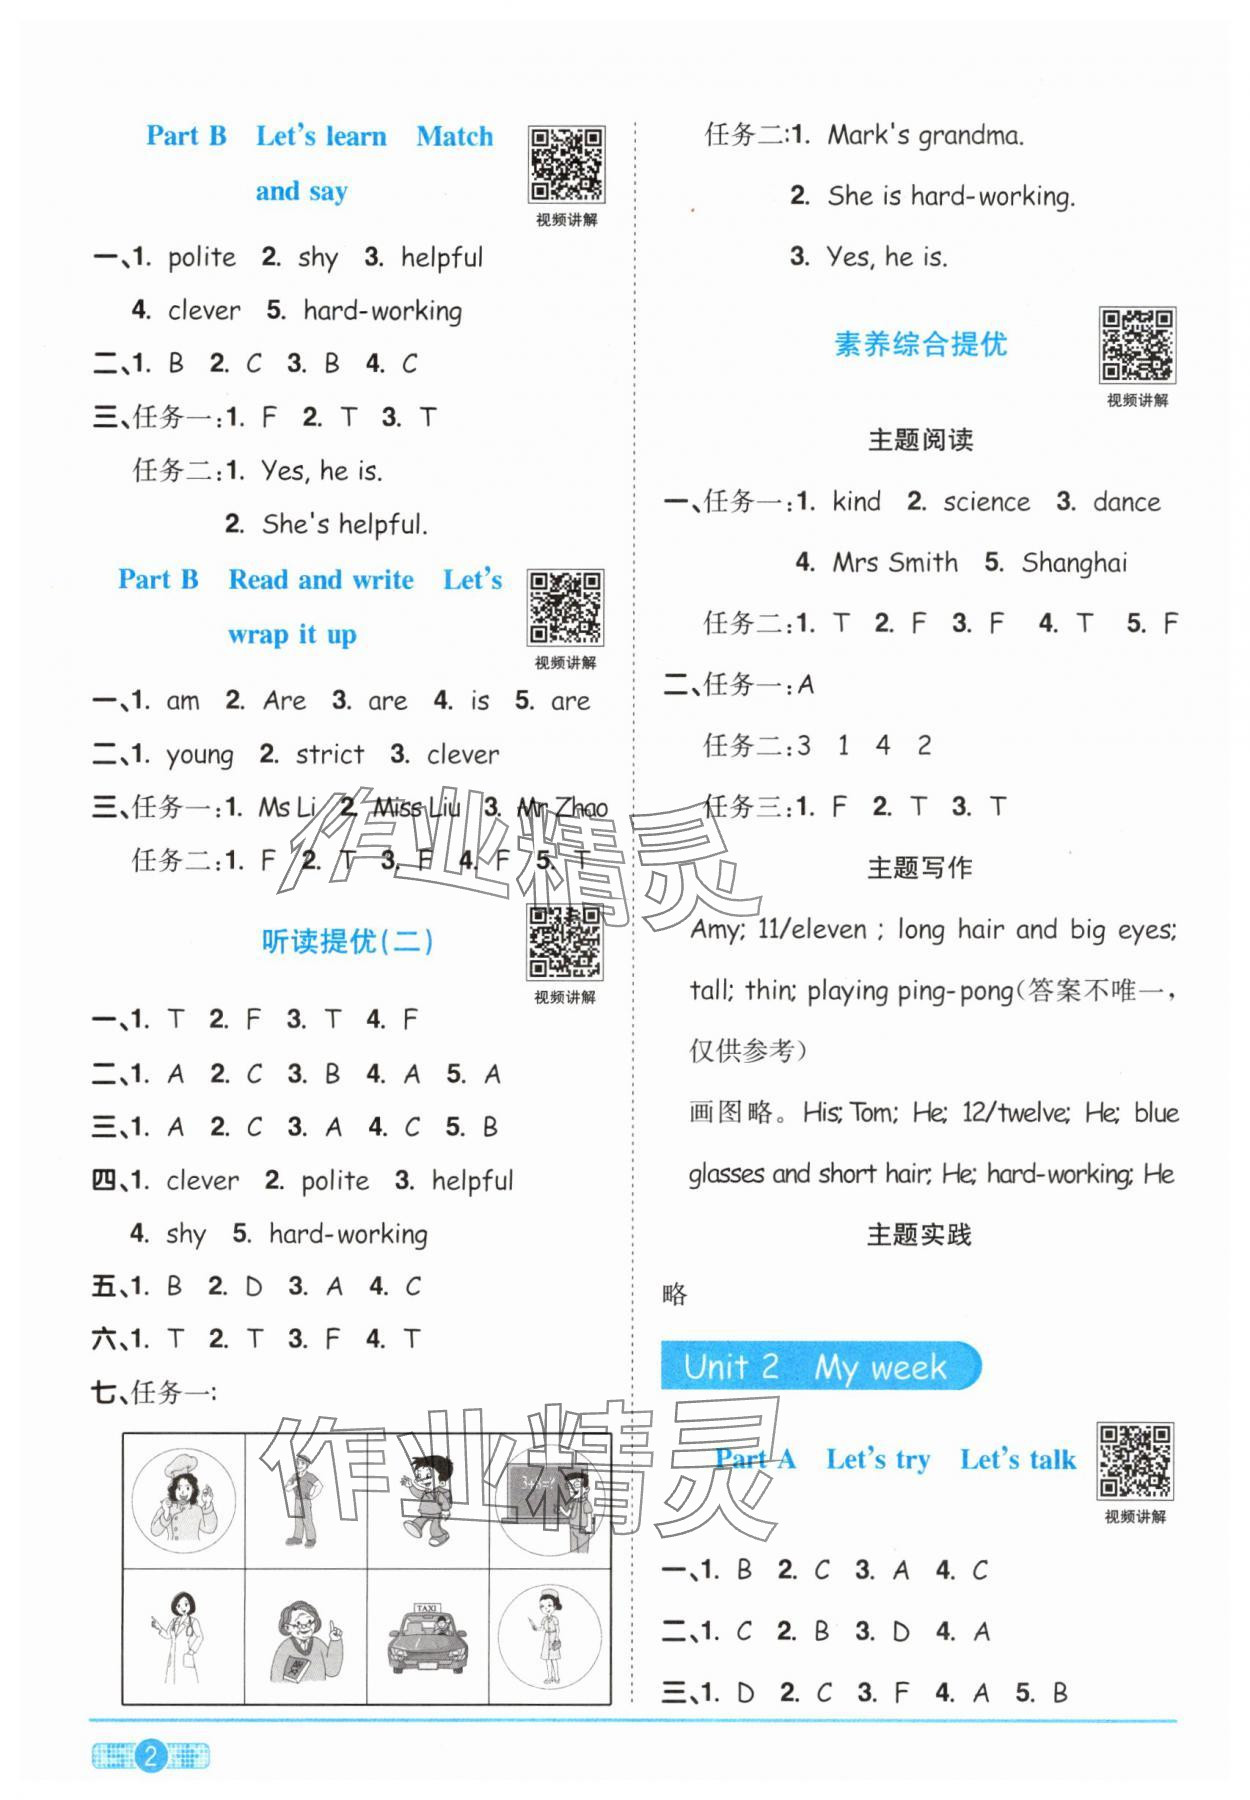 Part B Let's learn Match
and say
视频讲解
一、1. polite 2. shy 3. helpful
4. clever 5. hard-working
二、1. B 2. C 3. B 4. C
三、任务一:1. F 2. T 3. T
任务二:1. Yes, he is.
2. She's helpful.
Part B Read and write Let's
wrap it up
视频讲解
一、1. am 2. Are 3. are 4. is 5. are
二、1. young 2. strict 3. clever
三、任务一:1. Ms Li 2. Miss Liu 3. Mr Zhao
任务二:1. F 2. T 3. F 4. F 5. T
听读提优(二)
视频讲解
一、1. T 2. F 3. T 4. F
二、1. A 2. C 3. B 4. A 5. A
三、1. A 2. C 3. A 4. C 5. B
四、1. clever 2. polite 3. helpful
4. shy 5. hard-working
五、1. B 2. D 3. A 4. C
六、1. T 2. T 3. F 4. T
七、任务一:
TAXI
任务二:1. Mark's grandma.
2. She is hard-working.
3. Yes, he is.
素养综合提优
视频讲解
主题阅读
一、任务一:1. kind 2. science 3. dance
4. Mrs Smith 5. Shanghai
任务二:1. T 2. F 3. F 4. T 5. F
二、任务一:A
任务二:3 1 4 2
任务三:1. F 2. T 3. T
主题写作
Amy; 11/eleven ; long hair and big eyes;
tall; thin; playing ping-pong(答案不唯一,
仅供参考)
画图略。His; Tom; He; 12/twelve; He; blue
glasses and short hair; He; hard-working; He
主题实践
略
Unit 2 My week
Part A Let's try Let's talk
视频讲解
一、1. B 2. C 3. A 4. C
二、1. C 2. B 3. D 4. A
三、1. D 2. C 3. F 4. A 5. B
2
作业精灵
作业精灵